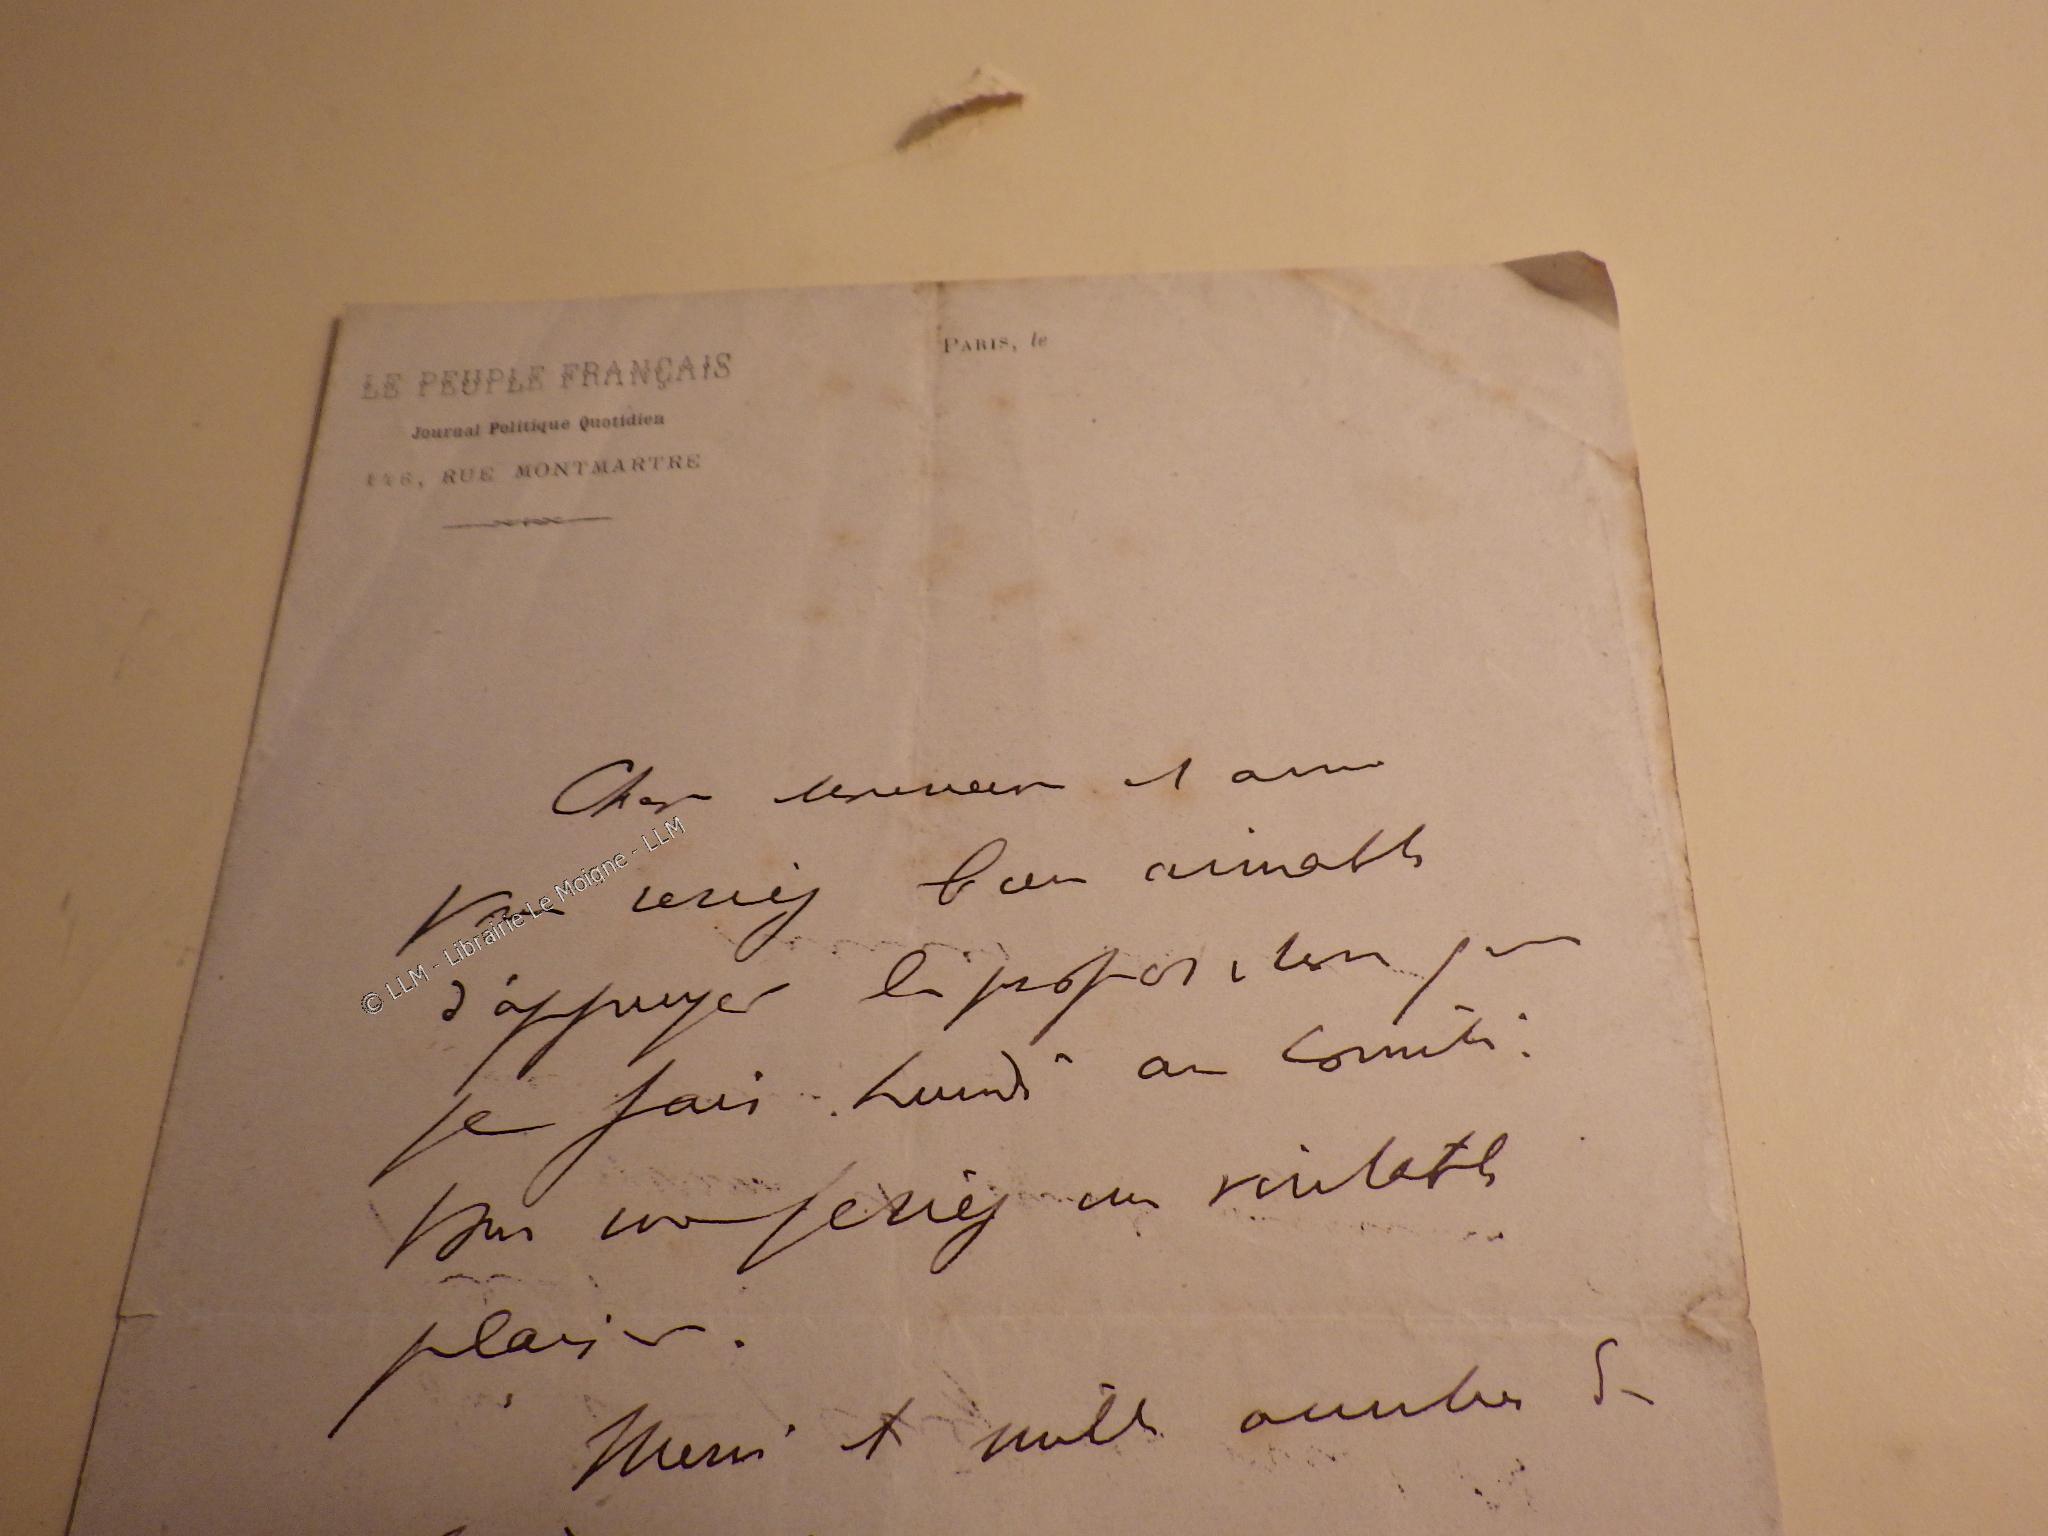 LE PEUPLE FRANÇAIS
Journal Politique Quotidien
146, RUE MONTMARTRE
PARIS, le
Cher monsieur et ami
Vous seriez bien aimable
d'appuyer la proposition que
je fais lundi au Comité.
Vous me feriez un véritable
plaisir.
Merci et mille amitiés de
© LLM - Librairie Le Moigne - LLM